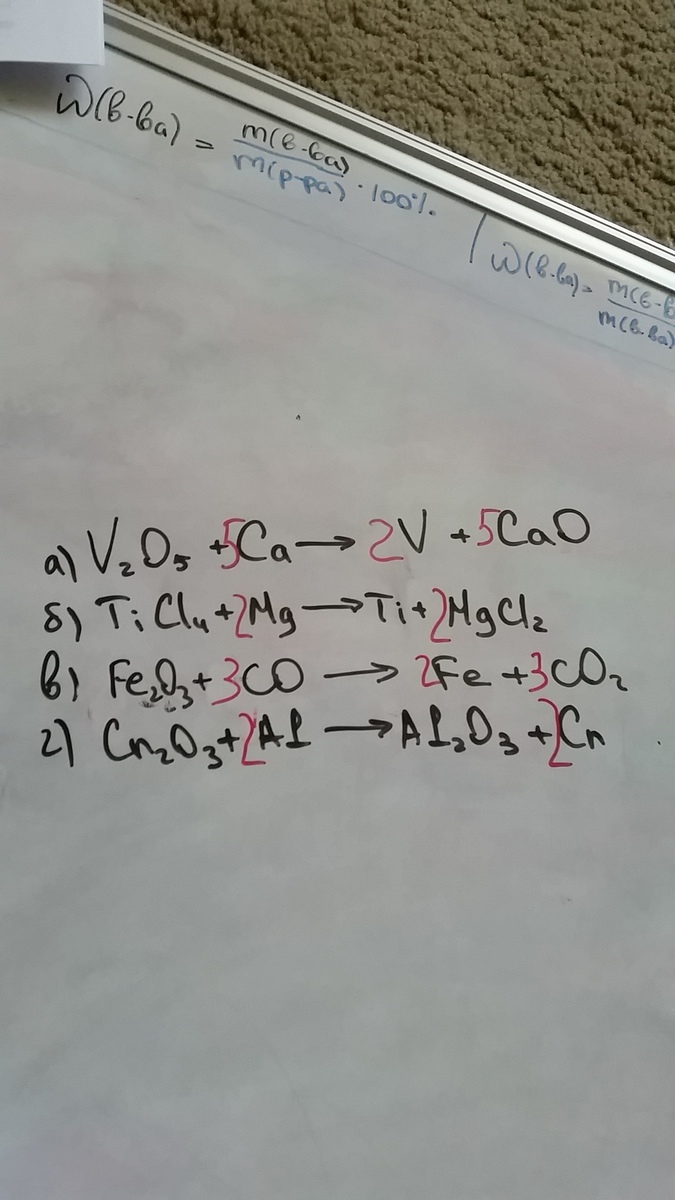 W(в-ва) = m(в-ва) / m(р-ра) · 100%.
W(в-ва) = m(в-в / m(в-ва)
а) V₂O₅ + 5Ca → 2V + 5CaO
б) TiCl₄ + 2Mg → Ti + 2MgCl₂
в) Fe₂O₃ + 3CO → 2Fe + 3CO₂
г) Cr₂O₃ + 2Al → Al₂O₃ + 2Cr